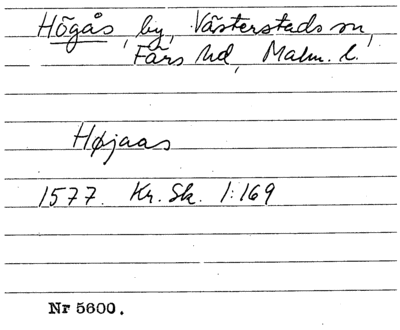 Högås, by, Västerstads sn,
Färs hd, Malm. l.
Højaas
1577. Kr. Sk. 1:169
Nr 5600.